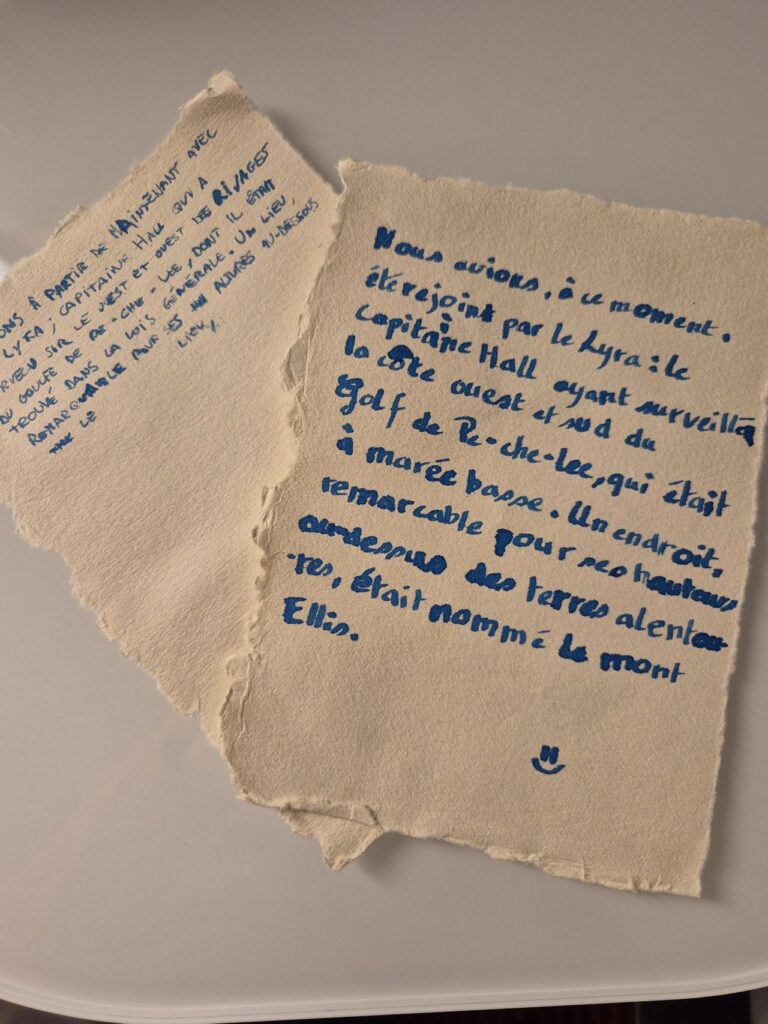 ONS À PARTIR DE MAINTENANT AVEC
LYRA; CAPITAINE HALL QUI A
SUR LE OUEST ET OUEST DES RIVAGES
DU GOULFE DE PE-CHE-LEE, DONT IL ÉTAIT
TROUVÉ DANS LA LOIS GÉNÉRALE. UN LIEU,
REMARQUABLE POUR SES AU-DESSOUS
LE
Nous avions, à ce moment.
été rejoint par le Lyra : le
capitaine Hall ayant surveillã
la côte ouest et sud du
Golf de Pe-che-lee, qui était
à marée basse. Un endroit,
remarcable pour ses hauteurs
au-dessus des terres alentou-
res, était nommé le mont
Ellis.